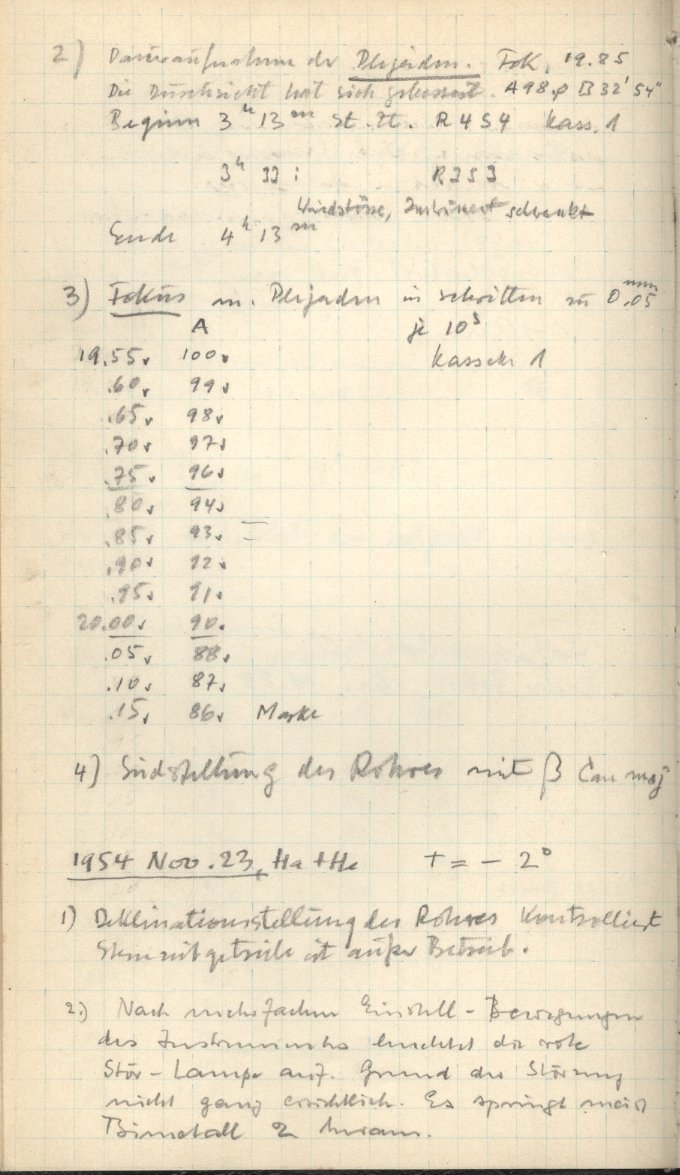 2) Daueraufnahme der Plejaden. Fok. 19.85
Die Durchsicht hat sich gebessert. A98.0 B32'54"
Beginn 3h 13m St. Zt. R454 Kass. 1
3h 33: R353
Windstösse, Instrument schwankt
Ende 4h 13m
3) Fokus m. Plejaden in Schritten zu 0.05mm
A je 10s
19.55 100 Kassette 1
.60 99
.65 98
.70 97
.75 96
.80 94
.85 93 =
.90 92
.95 91
20.00 90
.05 88
.10 87
.15 86 Marke
4) Südstellung des Rohres mit β Can maj
1954 Nov. 23, Ha + He T = - 2°
1) Deklinationsstellung des Rohres Kontrolliert
ist außer Betrieb.
2.) Nach mehrfachen Einstell-Bewegungen
des Instruments leuchtet die rote
Stör-Lampe auf. Grund der Störung
nicht ganz ersichtlich. Es springt meist
Bimetall 2 heraus.